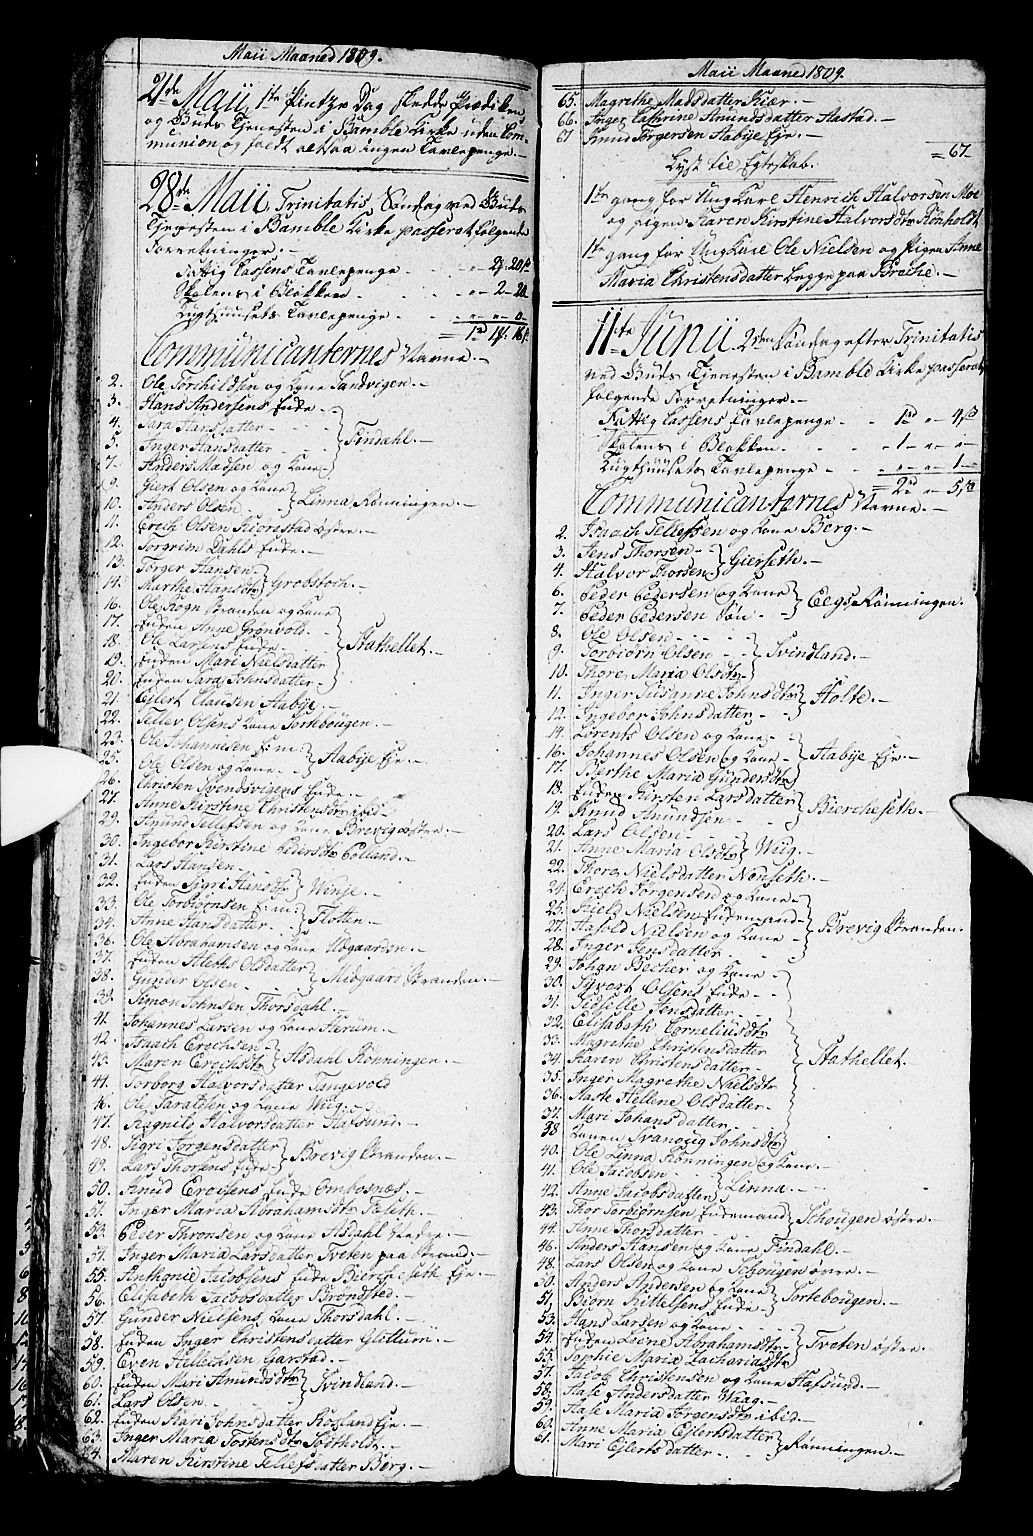 Maii Maaned 1809.
21de Maii, 1te Pintze Dag skedde Prædiken
og Guds Tjenesten i Bamble Kirke uden Com-
munion og faldt altsaa ingen Tavlepenge.-
28de Maii, Trinitatis Søndag ved Guds
Tjenesten i Bamble Kirke passerat følgende
Forretninger.-
Fattig Cassens Tavlepenge
Skolens i Blokken 2 - 20
Tugthuusets Tavlepenge
Communicanternes Navne.-
2. Ole Torchildsen og Kone Sandvigen.-
3. Hans Andersens Enke.-
4. Sara Hansdatter
5. Inger Hansdatter Findahl.-
7. Anders Madsen og Kone
9. Giert Olsen og Kone
10. Anders Olsen Linna Rønningen.-
11. Erich Olsen Kiørestad østre.-
12. Torgrim Dahls Enke.-
13. Torger Hansen
14. Marthe Hansdtr Grobstoch.-
16. Ole Skogn Stranden og Kone
17. Enken Anne Grønvold.-
18. Ole Larsens Enke.- Stathellet.-
19. Enken Mari Nielsdatter
20. Enken Sara Johnsdatter.-
21. Ejlert Clausen Aabye.-
22. Tellev Olsens Kone Tortebougen.-
23. Ole Johannesen
25. Ole Olsen og Kone Aabye Eje.-
26. Christen Svendsvigens Enke.-
27. Anne Kirstine Christensdtr ibid.-
29. Amund Tellefsen og Kone Brevig østre.-
30. Ingebor Kirstine Pedersdtr
31. Lars Hansen
32. Enken Sigri Hansdtr Winje.-
33. Ole Torbiørnsen
34. Anne Hansdatter Flotten.-
36. Ole Abrahamsen og Kone
37. Enken Aleths Olsdatter
38. Gunder Olsen Midgaars Stranden.-
39. Simon Johnsen Thorsdahl.-
41. Johannes Larsen og Kone Herum.-
42. Isaach Erochsen
43. Maren Erochsdtr Asdahl Rønningen.-
44. Torborg Halvorsdatter Tangevold
46. Ole Taraldsen og Kone Wug.-
47. Ragnild Halvorsdatter Hafsund.-
48. Sigri Torgensdatter
49. Lars Thorsens Enke Brevig Stranden.-
50. Knud Erochsens Enke Ombosnæs.-
51. Inger Maria Abrahamsdtr
53. Peder Thronsen og Kone Asdahl Nedre.-
54. Inger Maria Larsdatter Tveten paa Strand.-
55. Anthonie Jacobsens Enke Biercheseth Eje.-
56. Elisabeth Jacobsdatter Brondsted.-
57. Gunder Nielsens Kone Thorsdahl.-
58. Enken Inger Christensdatter Glittum.-
59. Even Hellechsen Garstad.-
60. Enken Mari Amundsdtr
61. Lars Olsen.- Svindland.-
62. Enken Kari Johnsdatter Rosland Eje.-
63. Inger Maria Tostensdtr
64. Maren Kirstine Tellefsdatter Berg.-
Maii Maaned 1809.
65. Magrethe Madsdatter Kiær.-
66. Inger Cathrine Amundsdatter Aastad.-
67 Knud Torgersen Aabye Eje.-
= 67-
Lyst til Egteskab.
1te gang for Ung Karl Henrich Halvorsen Moe
og Pigen Karen Kirstine Halvorsdtr Rønholdt
1te gang for Ung Karl Ole Nielsen og Pigen Anne
Maria Christensdatter begge paa Kroche.-
11te Junii 2den Søndag efter Trinitatis
ved Guds Tjenesten i Bamble Kirke passerat
følgende Forretninger.-
Fattig Cassens Tavlepenge
Skolens i Blokken
Tugthuusets Tavlepenge
Communicanternes Navne.-
2. Isaach Tellefsen og Kone Berg.-
3. Jens Thorsen
4. Halvor Thorsen Gierseth.-
6. Peder Pedersen og Kone
7. Peder Pedersen Søn Eegs Rønningen.
8. Ole Olsen
9. Torbiørn Olsen Svindland.-
10. Thore Maria Olsdtr
11. Inger Susanne Johnsdtr Holte.-
12. Ingebor Johnsdatter.-
14. Lorents Olsen og Kone
16. Johannes Olsen og Kone Aabye Eje.-
17. Berthe Maria Gundersdtr
18. Enken Kirsten Larsdatter
19. Knud Amundsen Biercheseth.-
20. Lars Olsen
21. Anne Maria Olsdtr Wug.-
22. Thora Nielsdatter Nenseth.-
24. Eroch Jorgensen og Kone
25. Niels Nielsen Enkemand
27. Aasold Nielsen og Kone Brevig Stranden.
28. Inger Jensdatter
29. Johan Becher og Kone
30. Sivort Olsens Enke
31. Sidselle Jensdatter
32. Elisabeth Corneliusdtr
33. Magrethe Christensdatter
34. Karen Christensdatter.- Stathellet
35. Inger Magrethe Nielsdtr
36. Aaste Hellene Olsdatter
37. Mari Johansdatter
38 Konen Svanovig Johnsdtr
40. Ole Linna Rønningen og Kone.-
41. Ole Jacobsen
42. Anne Jacobsdatter Linna.-
43. Thor Torbiørnsen Enkemand Schougen østre.-
44. Anne Thorsdatter
46. Anders Hansen og Kone Findahl.-
48. Lars Olsen og Kone Schougen øvre.-
50. Anders Andersen og Kone
51. Biørn Kittelsens Enke Tortebougen.-
53. Hans Larsen og Kone
54. Enken Leene Abrahamsdtr Tveten østre.-
55. Sophie Maria Zachariasdtr
57. Jacob Christensen og Kone Hafsund.-
58. Aase Andersdatter Waag.-
59. Aase Maria Jorgensdtr ibid.-
60. Anne Maria Ejlertsdatter
61. Mari Ejlertsdatter.- Rønningen.-